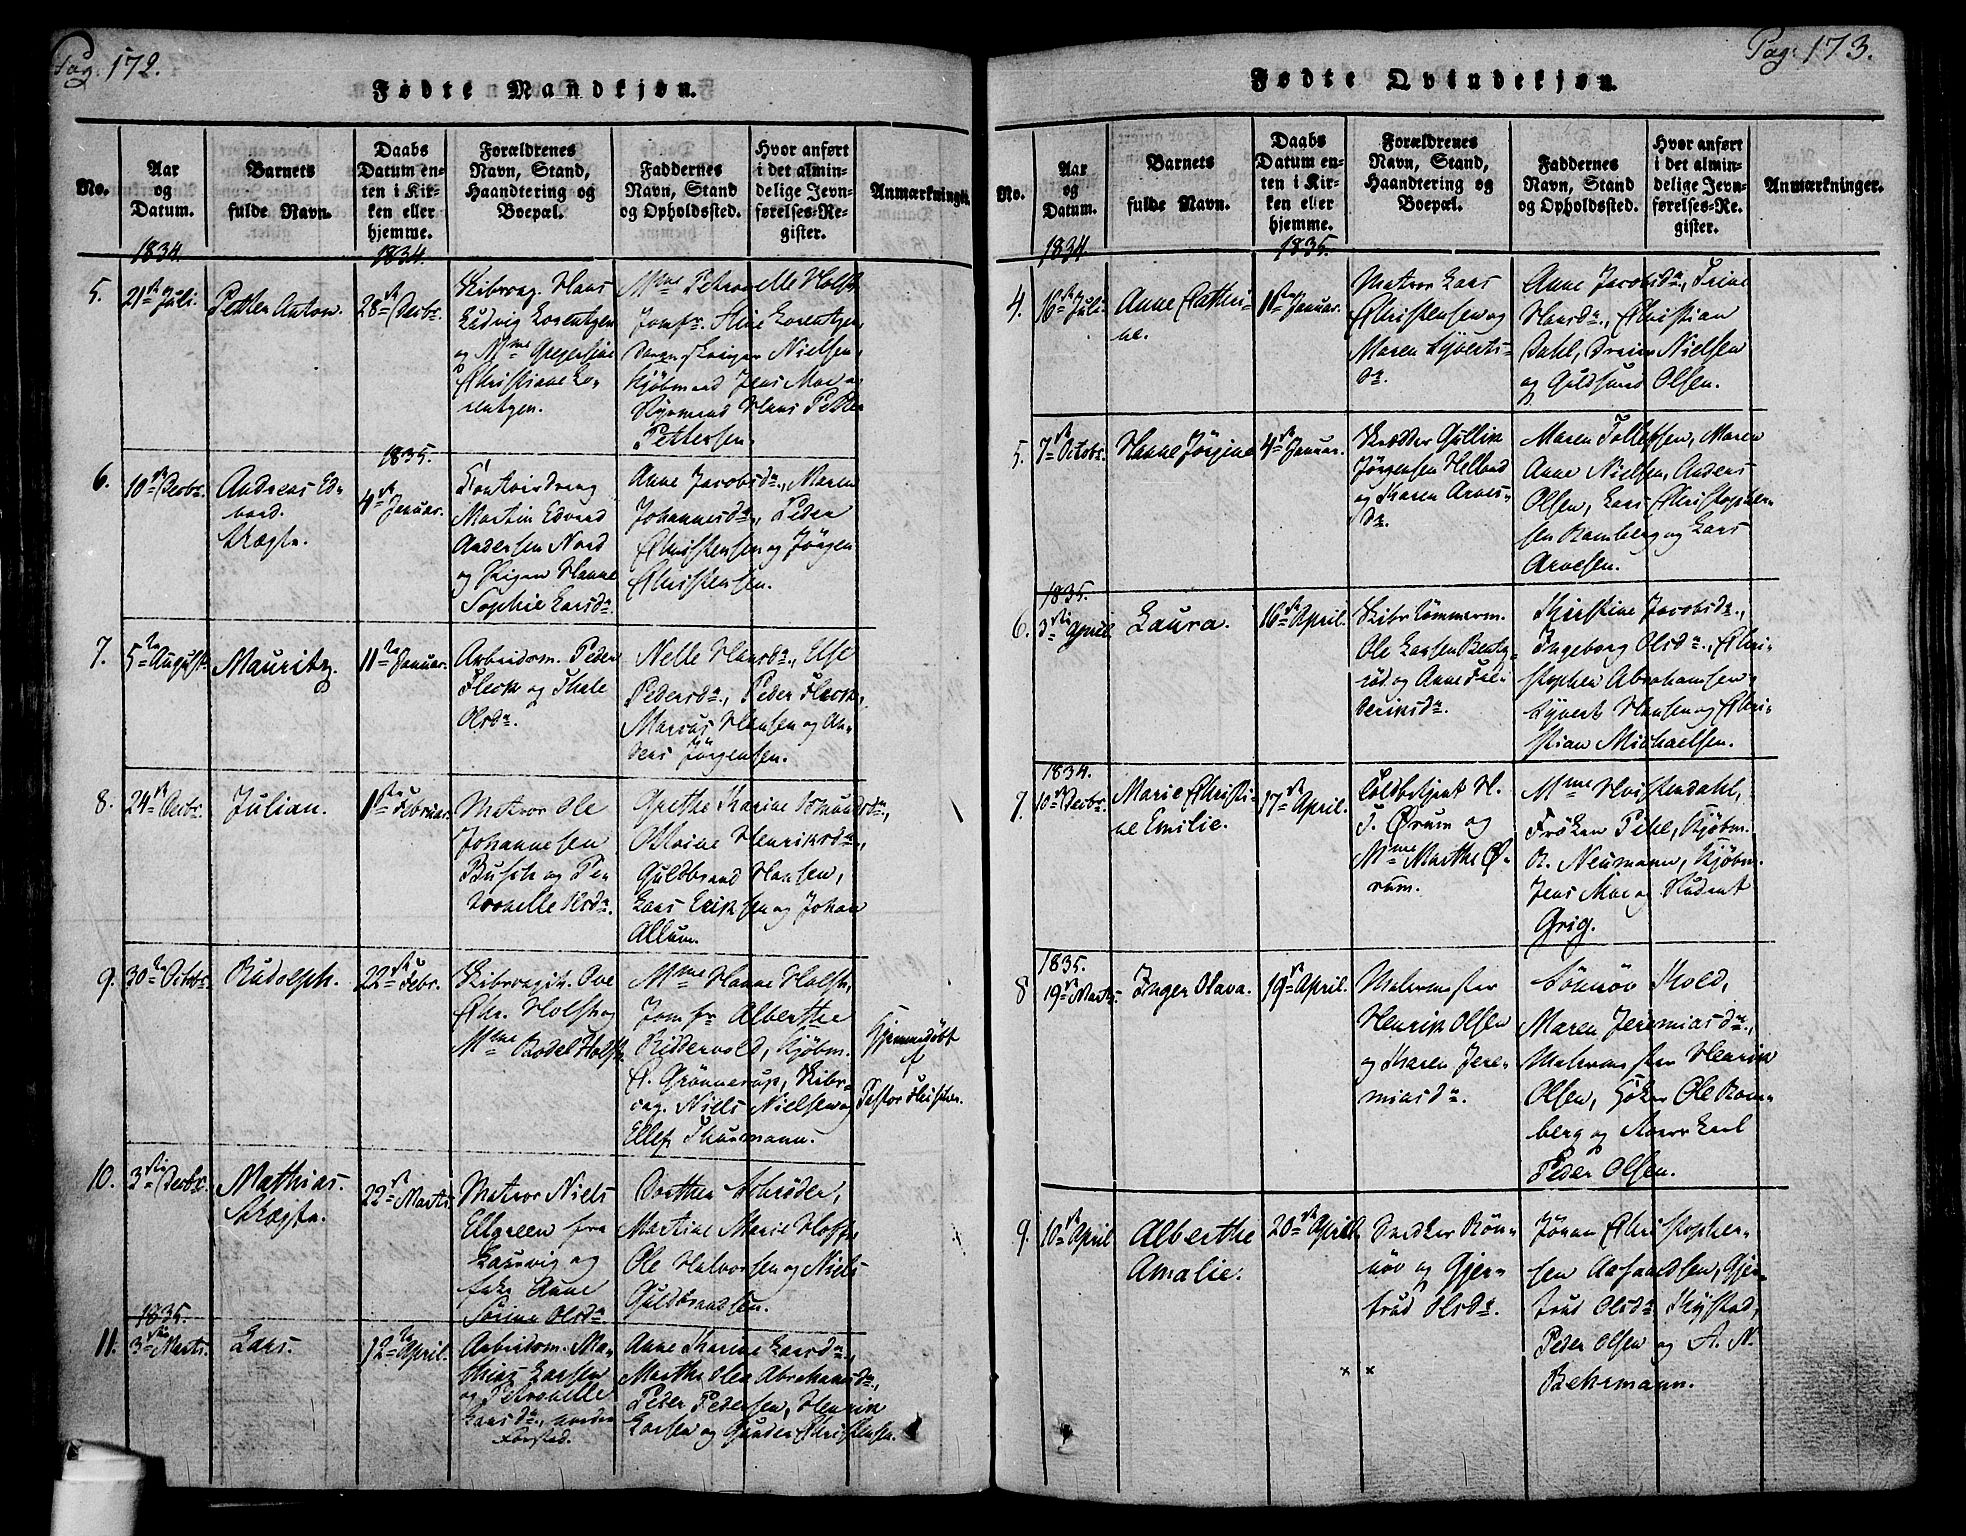 Pag. 172.
Fødte Mandkjøn.
No.
Aar
og
Datum.
Barnets
fulde Navn.
Daabs
Datum en-
ten i Kir-
ken eller
hjemme.
Forældrenes
Navn, Stand,
Haandtering og
Boepæl.
Faddernes
Navn, Stand
og Opholdssted.
Hvor anført
i det almin-
delige Jevn-
førelses-Re-
gister.
Anmærkninger.
1834.
1834.
5.
21de Juli.
Petter Anton.
28de Decbr.
Skibscap. Hans
Ludvig Lorentzen
og Mme
Christiane Lo-
rentzen.
Mme Petronelle Holst,
Jomfr. Line Lorentzen,
Nielsen,
Kjøbmand Jens Moe og
Styrmand Hans Petter
Pettersen.
1835.
6.
10de Decbr.
Andreas Ed-
vard.
Uægte.
4de Januar.
Martin Edvard
Andersen Nord
og Pigen Hanne
Sophie Larsdr.
Anne Jacobsdr., Maren
Johannesdr., Peder
Christensen og Jørgen
Christensen.
7.
5te August
Mauritz.
11te Januar.
Arbeidsm. Peder
Flesk og Thale
Olsdr.
Nelle Hansdr., Else
Pedersdr., Peder Flesk,
Marcus Hansen og An-
ders Jørgensen.
8.
24de Decbr.
Julian.
1ste Februar.
Matros Ole
Johannesen
Busch og Pe-
tronelle Olsdr.
Grethe Karine
Olsine Henriksdr.,
Guldbrand Hansen,
Lars Eriksen og Johan
Allum.
9.
30te Octbr.
Rudolph.
22de Febr.
Skibscapt. Ove
Chr. Holst og
Mme Bodel Holst.
Mme Hanne Holst,
Jomfr. Alberthe
Riddervold, Kjøbm.
C. Grønnerup, Skibs-
cap. Niels Nielsen og
Ellef Thurmann.
Hjemmedøbt
af
Pastor Flischer.
10.
3die Decbr.
Mathias.
Uægte.
22de Marts.
Matros Niels
Ellgreen fra
Laurvig og
Enke Anne
Sørine Olsdr.
Dorthea Schrøder,
Martine Marie Hoff,
Ole Halvorsen og Niels
Guldbrandsen.
1835.
11.
3die Marts.
Lars.
12te April.
Arbeidsm. Ma-
thias Larsen
og Petronelle
Larsdr., nordre
Forstad.
Anne Karine Larsdr.,
Marthe Olea Abrahamsdr.,
Peder Pedersen, Henrik
Larsen og Gunder Christensen.
Pag: 173.
Fødte Qvindekjøn.
No.
Aar
og
Datum.
Barnets
fulde Navn.
Daabs
Datum en-
ten i Kir-
ken eller
hjemme.
Forældrenes
Navn, Stand,
Haandtering og
Boepæl.
Faddernes
Navn, Stand
og Opholdssted.
Hvor anført
i det almin-
delige Jevn-
førelses-Re-
gister.
Anmærkninger.
1834
1835.
4.
16de Juli.
Anne Cathri-
ne.
11te Januar.
Matros Lars
Christensen og
Maren Syverts-
dr.
Anne Jacobsdr., Trine
Hansdr., Christian
Dahl, Nielsen
og Olsen.
5.
7de Octobr.
Hanne Jørgine.
4de Januar.
Skrædder Gullik
Jørgensen Helland
og Karen Arves-
dr.
Maren Tollefsen, Maren
Anne Nielsen, Anders
Olsen, Lars Christopher-
sen Ramberg og Lars
Arvesen.
1835.
6.
3die April.
Laura.
16de April.
Skibstømmerm.
Ole Larsen Bentz-
rød og Anne Fre-
deriksdr.
Kirstine Jacobsdr.,
Ingeborg Olsdr., Chri-
stopher Abrahamsen,
Syvert Hansen og Chri-
stian Michaelsen.
1834.
7.
10de Decbr.
Marie Christi-
ne Emilie.
17de April.
Toldbetjent H.
T. Ørum og
Mme Marthe Ø-
rum.
Mme Hvistendahl,
Frøken Pihl, Kjøbm.
R. Neumann, Kjøbm.
Jens Moe og Student
Grig.
1835.
8
19de Marts.
Inger Olava.
19de April.
Malermester
Henrik Olsen
og Karen Jere-
miasdr.
Kold,
Maren Jeremiasdr.,
Malermester Henrik
Olsen, Høker Ole Ram-
berg og
Peder Olsen.
9.
10de April
Alberthe
Amalie.
20de April.
Snedker Røn-
nøv og Gjer-
trud Olsdr.
× ×
Johan Christopher-
sen Aafaadsen, Gjer-
trud Olsdr.
Peder Olsen og A. N.
Behrmann.